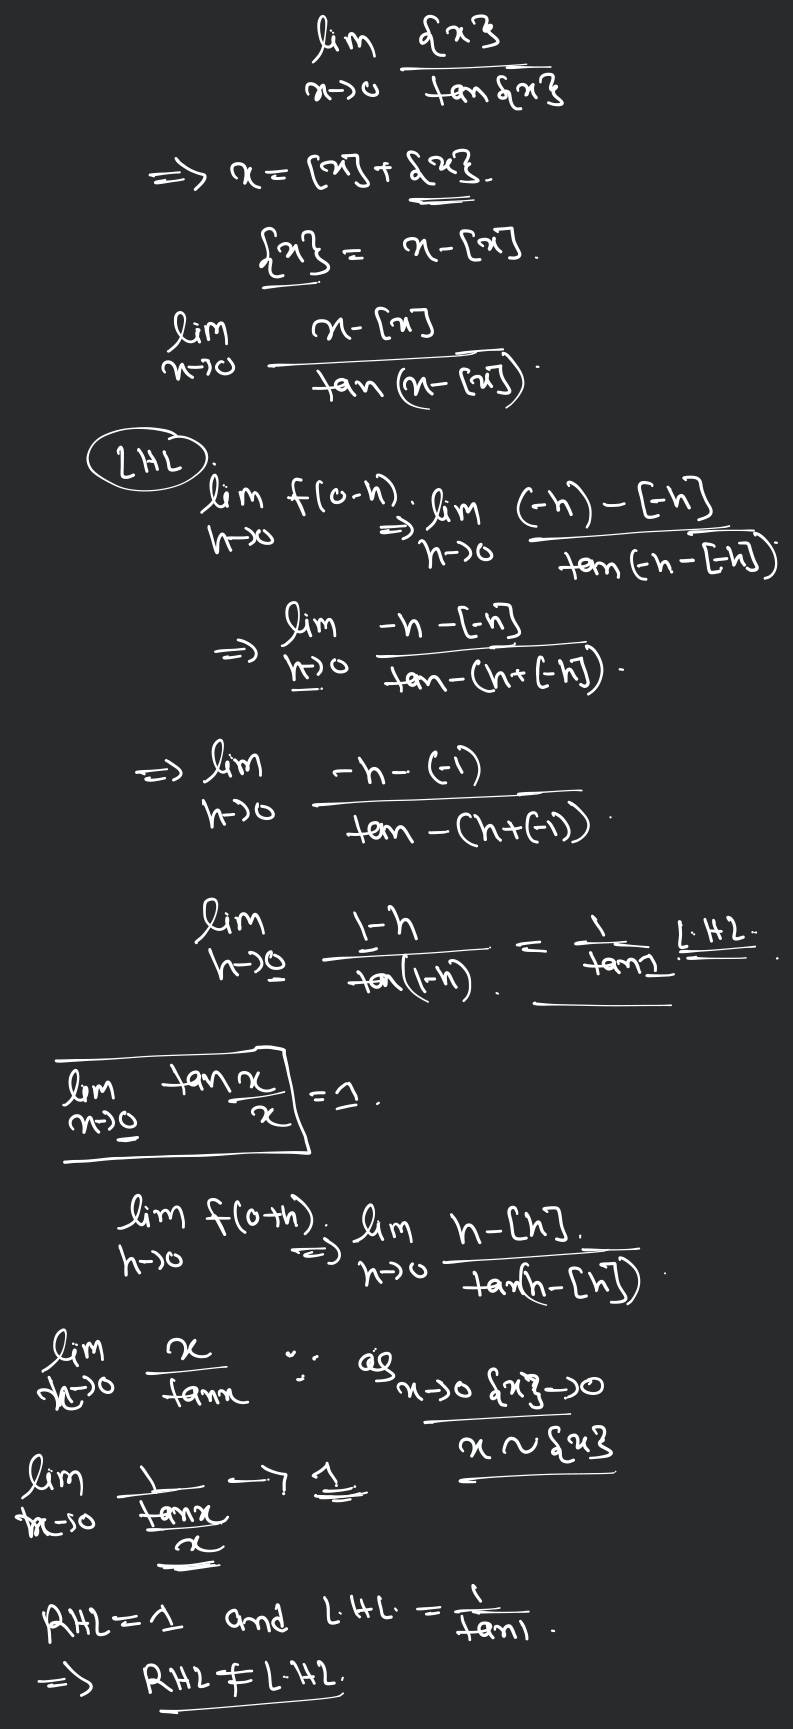 lim x→0 {x} / tan{x}
=> x = [x] + {x}.
{x} = x - [x].
lim x→0 x - [x] / tan(x - [x]).
LHL.
lim h→0 f(0-h). => lim h→0 (-h) - [-h] / tan(-h - [-h])
=> lim h→0 -h - [-h] / tan-(h + [-h]).
=> lim h→0 -h - (-1) / tan-(h + (-1)).
lim h→0 1-h / tan(1-h). = 1 / tan1 L.H.L.
lim x→0 tan x / x = 1.
lim h→0 f(0+h). => lim h→0 h - [h]. / tan(h - [h]).
lim x→0 x / tanx ∵ as x→0 {x}→0
x ~ {x}
lim x→0 1 / tanx / x → 1
RHL = 1 and L.HL. = 1 / tan1.
=> RHL ≠ L.HL.